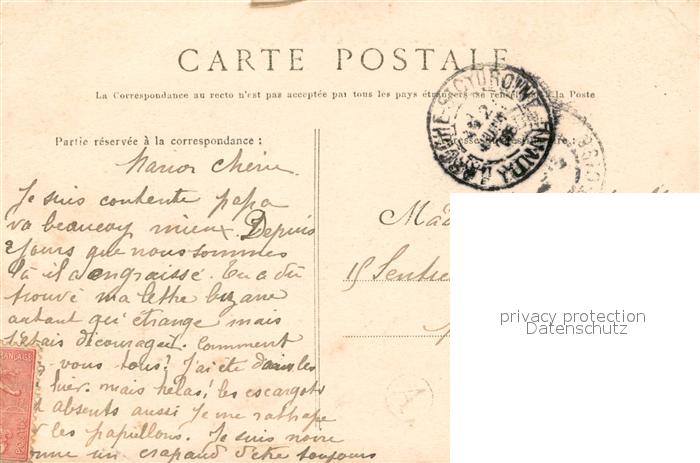 CARTE POSTALE
La Correspondance au recto n'est pas acceptée par tous les pays étrangers se la Poste
Partie réservée à la correspondance :
Chérie.
Je suis contente papa
va beaucoup mieux. Depuis
jours que nous sommes
là il a engraissé. Tu a dû
trouvé ma lettre bizare
autant qu' étrange mais
j'étais découragée. Comment
vous tous? J'ai été dans les
hier. mais hélas! les escargots
absents aussi je me rattrape
les papillons. Je suis noire
un crapaud d'être toujours
Mad
15 Sentie
A
privacy protection
Datenschutz